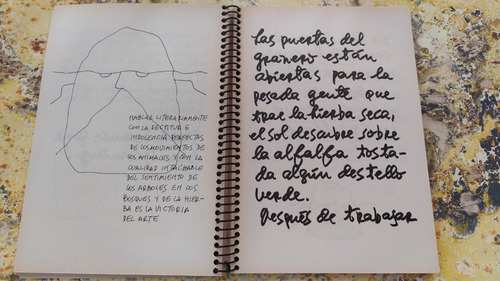 HABLAR LITERARIAMENTE
CON LA RECTITUD E
INDOLENCIA PERFECTAS
DE LOS MOVIMIENTOS DE
LOS ANIMALES Y CON LA
CUALIDAD INTACHABLE
DEL SENTIMIENTO DE
LOS ARBOLES EN LOS
BOSQUES Y DE LA HIER-
BA ES LA VICTORIA
DEL ARTE
Las puertas del
granero están
abiertas para la
pesada gente que
trae la hierba seca,
el sol descubre sobre
la alfalfa tosta-
da algún destello
verde.
Después de trabajar